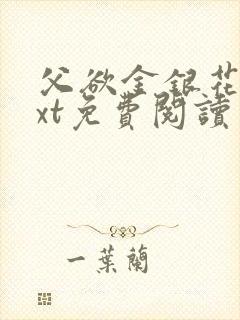 父欲金银花
xt免費閱讀
一葉蘭